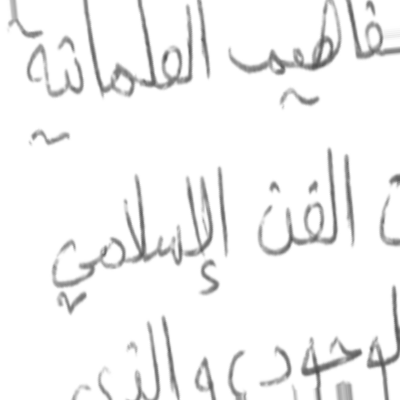 مفاهيم العلمانية
الفن الإسلامي
الوجودي والذي